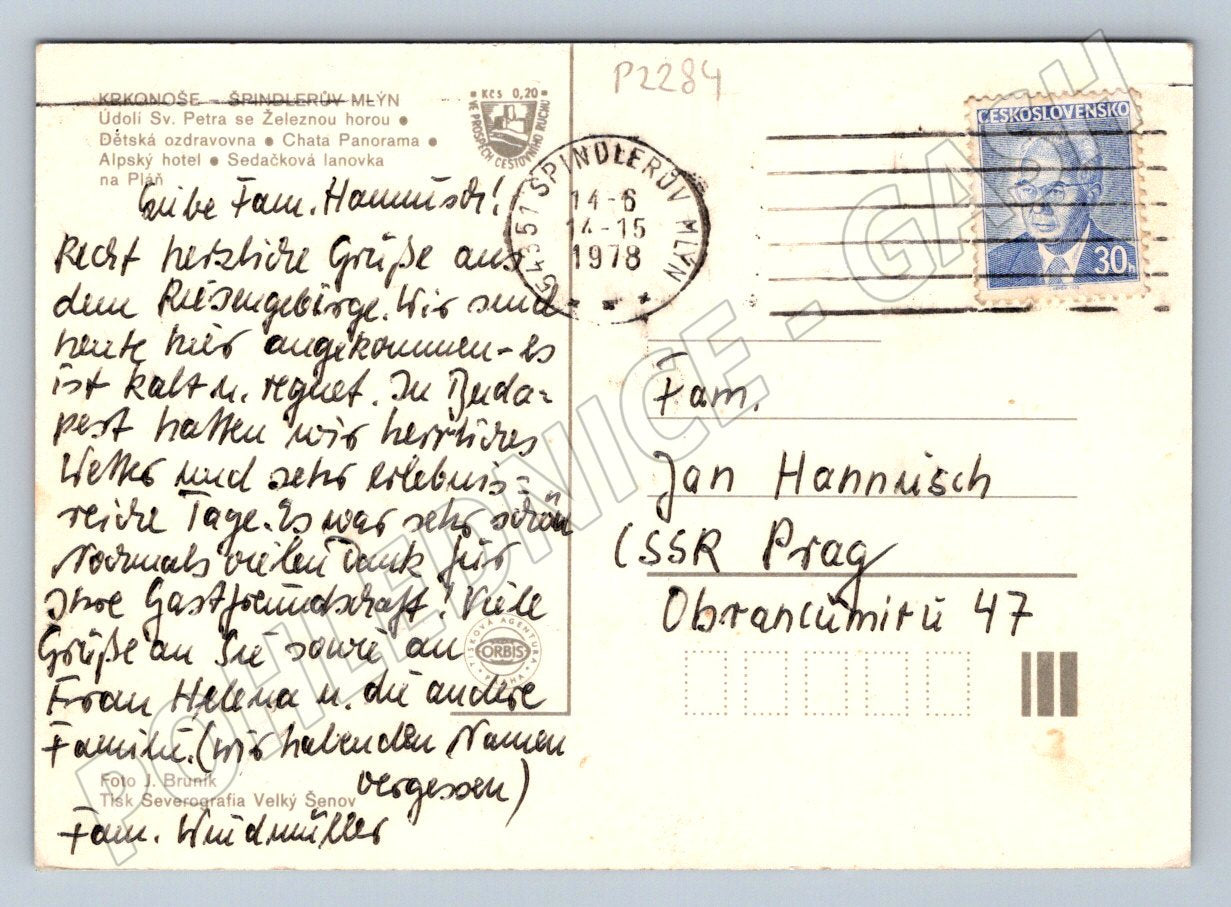 P2284
KRKONOŠE – ŠPINDLERŮV MLÝN
Údolí Sv. Petra se Železnou horou ●
Dětská ozdravovna ● Chata Panorama ●
Alpský hotel ● Sedačková lanovka
na Pláň
Kčs 0,20
VE PROSPĚCH CESTOVNÍHO RUCHU
543 51 ŠPINDLERŮV MLÝN
14-6
14-15
1978
ČESKOSLOVENSKO
30h
Liebe Fam. Hannusch!
Recht herzliche Grüße aus
dem Riesengebirge. Wir sind
heute hier angekommen - es
ist kalt u. regnet. In Buda=
pest hatten wir herrliches
Wetter und sehr erlebnis=
reiche Tage. Es war sehr schön
Nochmals vielen Dank für
Ihre Gastfreundschaft! Viele
Grüße an Sie sowie an
Frau Helena u. die andere
Familie. (wir haben den Namen
vergessen)
Fam. Windmüller
Fam.
Jan Hannusch
ČSSR Prag
Obrancúmirú 47
TISKOVÁ AGENTURA
ORBIS
PRAHA
Foto J. Bruník
Tisk Severografia Velký Šenov
POHLEDNICE - GASH